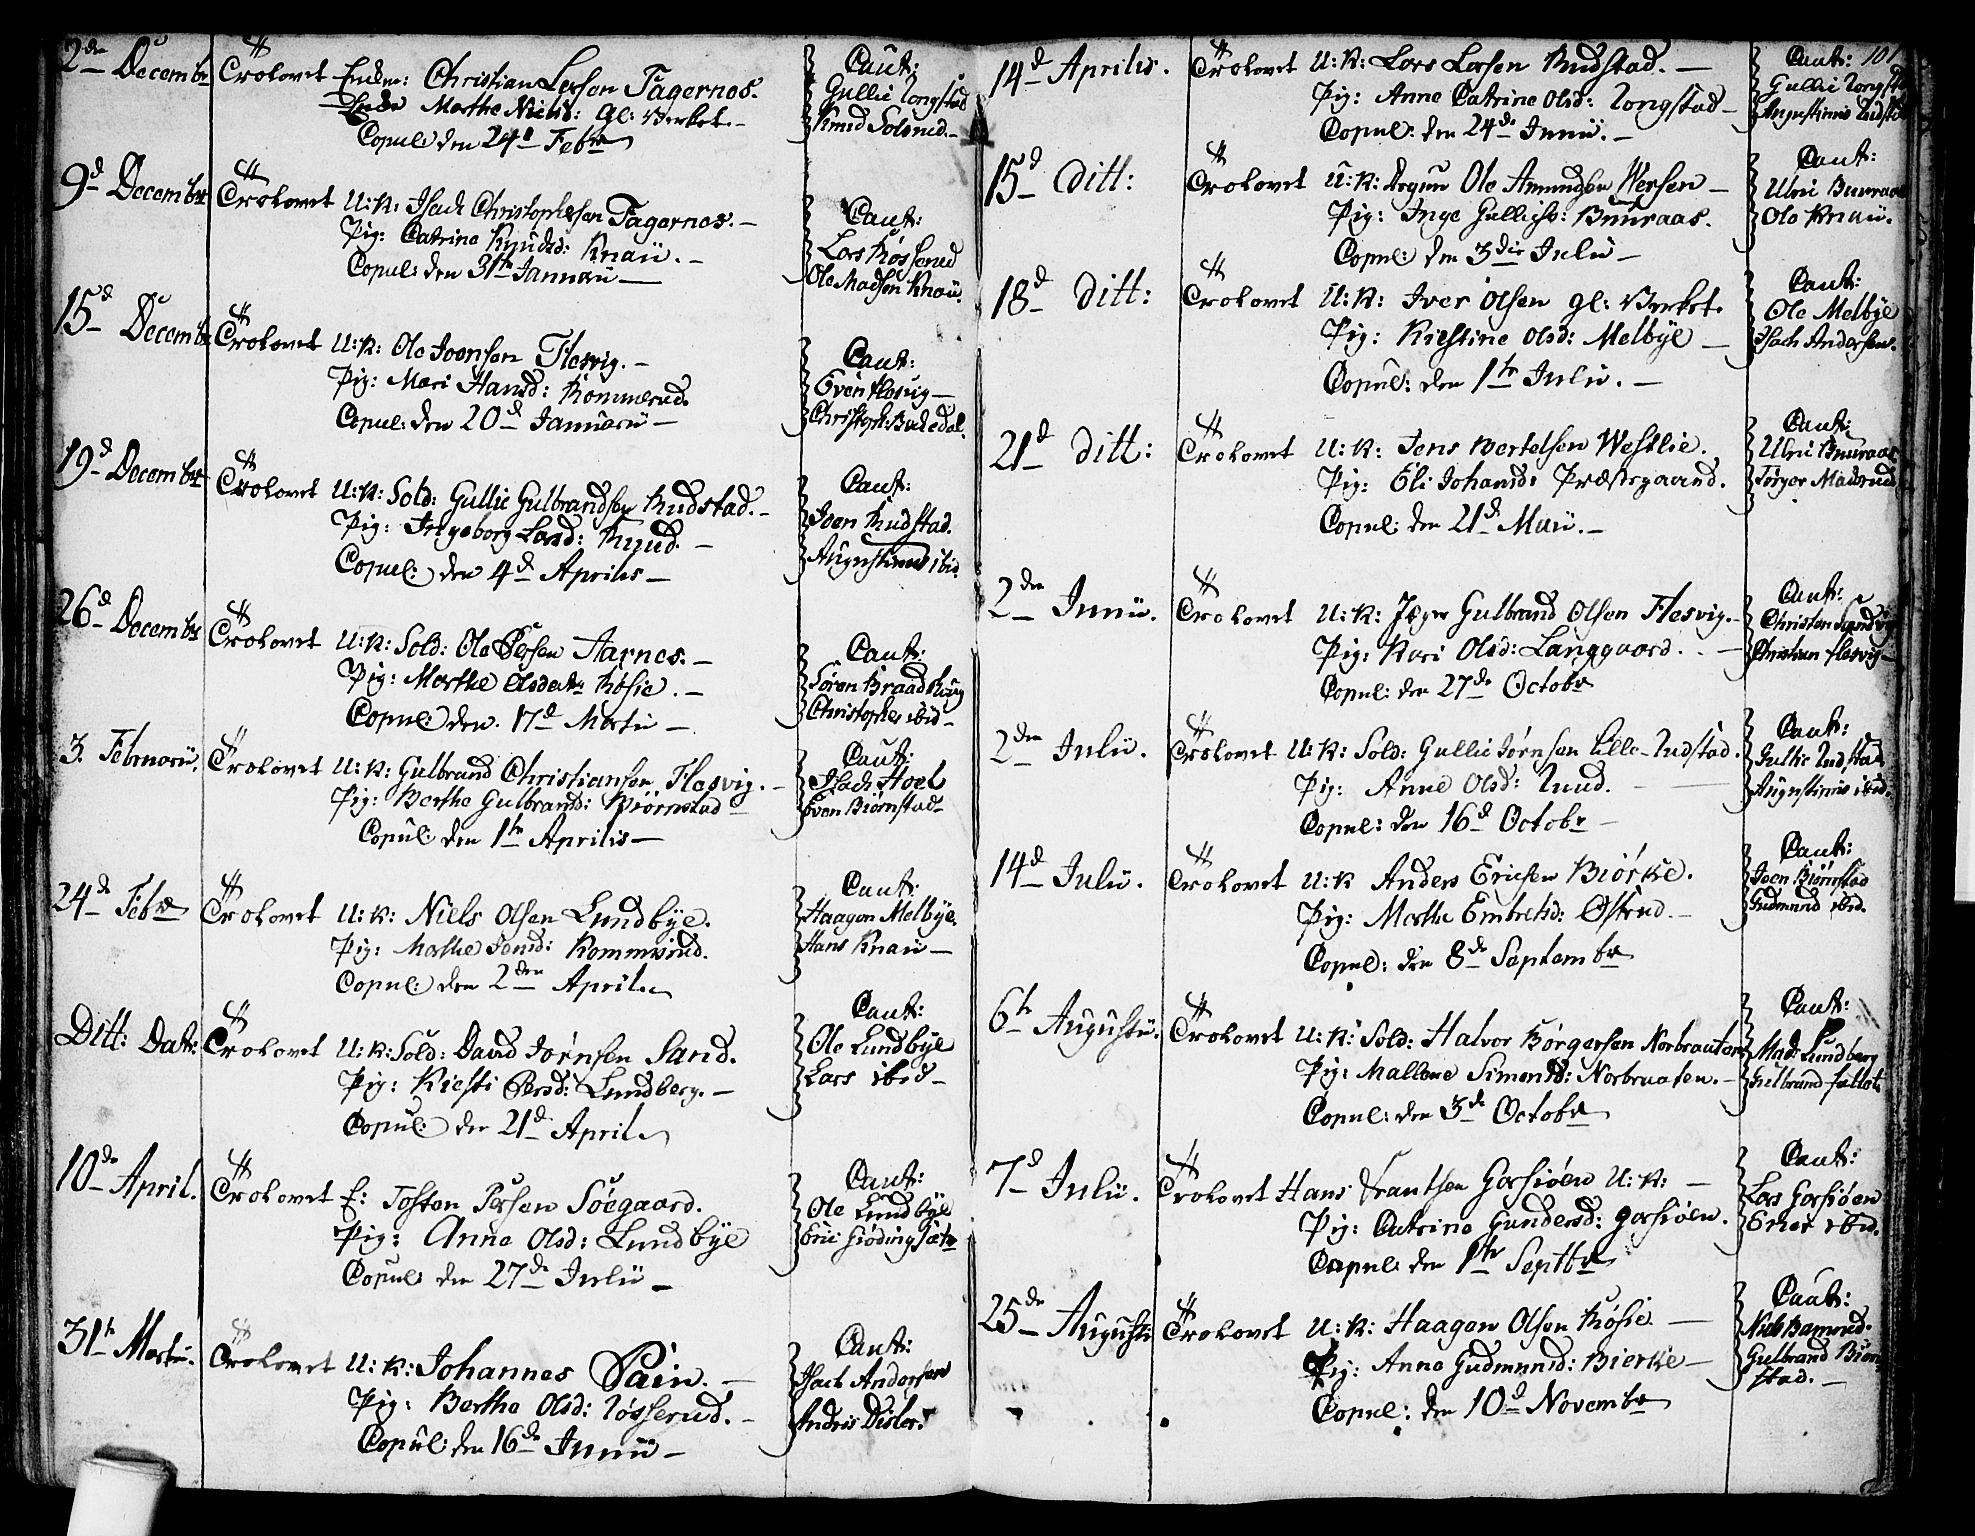 2den Decembr Trolovet Enkm: Christian Larsen Fagernes.
Enke Marthe Nielsd: gl: Verket.
Copul: den 24d Febr
Caut:
Gullie Longstad
Knud Solerud.
9d Decembr Trolovet U:K: Isach Christophersen Fagernes.
Pig: Catrine Knudsd: Knaü.
Copul: den 31te Januarii
Caut:
Lars Røsserud
Ole Madsen Knaü.
15d Decembr Trolovet U:K: Ole Joensen Flesvig.
Pig: Mari Hansd: Kommerud.
Copul: den 20d Januarii
Caut:
Even Flesvig
Christoph: Bakedal.
19d Decembr Trolovet U:K: Sold: Gullie Gulbrandsen Rudstad.
Pig: Ingeborg Larsd: Ruud.
Copul: den 4d Aprilis
Caut:
Joen Rudstad.
Augustinus ibid.
26d Decembr Trolovet U:K: Sold: Ole Persen Aarnes.
Pig: Marthe Olsdatr Røsie.
Copul: den 17d Martii
Caut:
Søren Braadshaug
Christopher ibid
3. Februarii. Trolovet U:K: Gulbrand Christiansen Flesvig.
Pig: Berthe Gulbrands: Biørnstad
Copul: den 1te Aprilis
Caut:
Isach Hoel
Even Biørnstad
24de Febr Trolovet U:K: Niels Olsen Lundbye.
Pig: Marthe Joensd: Kommerud.
Copul: den 2den April.
Caut:
Haagon Melbye.
Hans Knaü
Ditt: Dat: Trolovet U:K: Sold: David Jørnsen Sand.
Pig: Kiesti Persd: Lundberg.
Copul: den 21d April.
Caut:
Ole Lundbye
Lars ibid
10de April. Trolovet E: Tosten Persen Søegaard.
Pig: Anne Olsd: Lundbye
Copul: den 27de Julii
Caut:
Ole Lundbye
Eric Giødingsætr
31te Martii. Trolovet U:K: Johannes Pain.
Pig: Berthe Olsd: Løsserud.
Copul: den 16de Junii
Caut:
Isach Andersen
Andris Disler
101
14d Aprilis. Trolovet U:K: Lars Larsen Rudstad.
Pig: Anne Catrine Olsd: Longstad
Copul: den 24de Junii.
Caut:
Gullie Longstad
Augustinus Rudstad
15d Ditt: Trolovet U:K: Dragun Ole Amundsen Wersen
Pig: Inge Gullichs: Buuraas.
Copul: den 3die Julii
Caut:
Ulric Buuraas
Ole Knaü.
18d Ditt: Trolovet U:K: Iver Olsen gl: Verket.
Pig: Kiestine Olsd: Melbye
Copul: den 1te Julii.
Caut:
Ole Melbye
Isach Andersen.
21d Ditt: Trolovet U:K: Jens Bertelsen Westlie.
Pig: Eli Johansd: Præstegaard.
Copul: den 21d Maii.
Caut:
Ulric Buuraas
Jørger Madserud
2den Junii. Trolovet U:K: Jæger Gulbrand Olsen Flesvig.
Pig: Kari Olsd: Langgaard.
Copul: den 27de Octobr
Caut:
Christen
Christian Flesvig
2den Julii. Trolovet U:K: Sold: Gullic Jørnsen Lille-Rudstad.
Pig: Anne Olsd: Ruud.
Copul: den 16d Octobr
Caut:
Gullic Rudstad
Augustinus ibid.
14d Julii. Trolovet U:K Anders Ericsen Biørke.
Pig: Marthe Embretsd: Østrud.
Copul: den 8de Septembr
Caut:
Joen Biørnstad
Gudmund ibid.
6te Augustii. Trolovet U:K: Sold: Halvor Børgersen Norbraaten
Pig: Mallene Simensd: Norbraaten.
Copul: den 3de Octobr
Caut:
Mads Lundberg
Gulbrand
7d Julii. Trolovet Hans Frantsen Gorsiøen U:K:
Pig: Catrine Gundersd: Gorsiøen.
Copul: den 1te Septbr
Caut:
Lars Gorsiøen
Ener ibid.
25de Augusti Trolovet U:K: Haagon Olsen Røsie.
Pig: Anne Gudmunsd: Bierke
Copul: den 10d Novembr
Caut:
Niels Bamrud.
Gulbrand Biørn
stad.